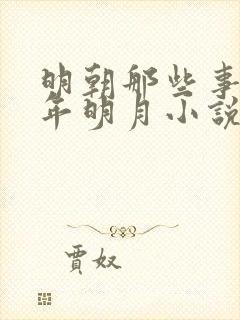 明朝那些事
年明月小說
賈奴